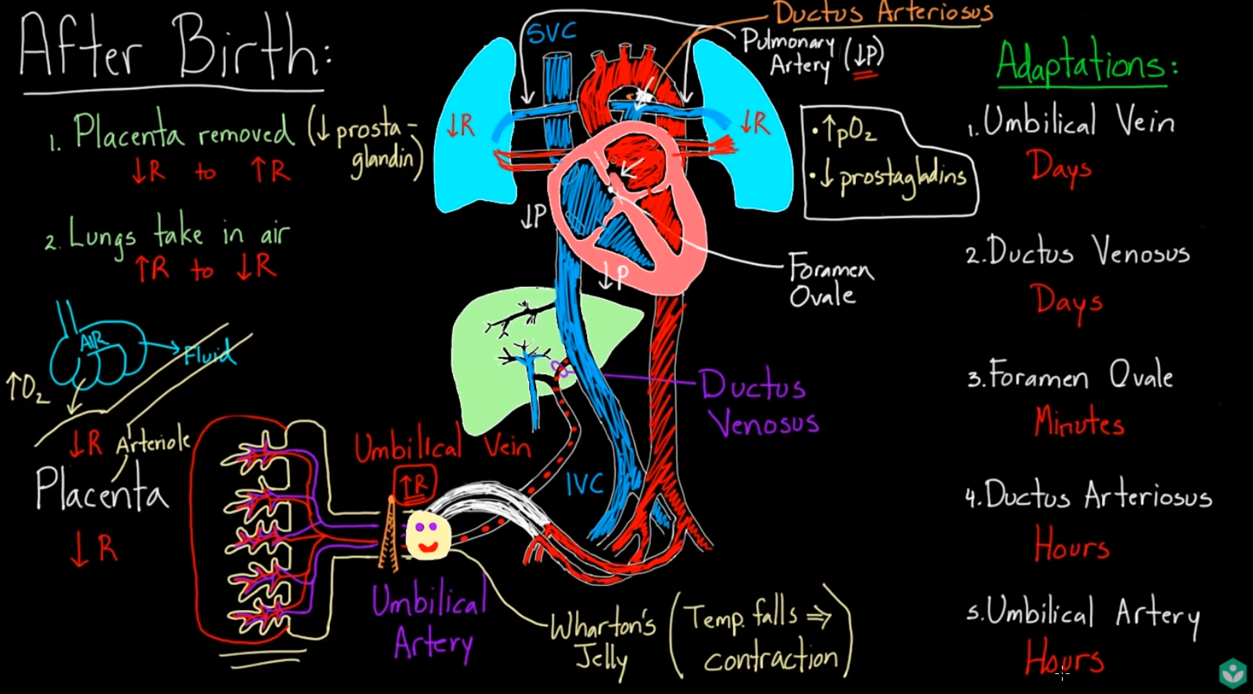 After Birth:
1. Placenta removed (↓prosta-
glandin)
↓R to ↑R
2. Lungs take in air
↑R to ↓R
AIR
Fluid
↑O2
↓R Arteriole
Placenta
↓R
SVC
Ductus Arteriosus
Pulmonary
Artery (↓P)
↓R
↓R
•↑pO2
•↓prostagladins
↓P
↓P
Foramen
Ovale
Ductus
Venosus
Umbilical Vein
↑R
IVC
Umbilical
Artery
Wharton's
Jelly
(Temp. falls ⇒
contraction)
Adaptations:
1. Umbilical Vein
Days
2. Ductus Venosus
Days
3. Foramen Ovale
Minutes
4. Ductus Arteriosus
Hours
5. Umbilical Artery
Hours